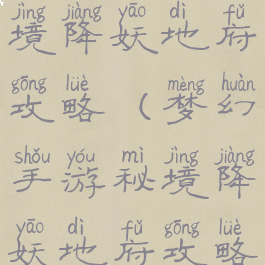 jìng jiàng yāo dì fǔ
境降妖地府
gōng lüè mèng huàn
攻略（梦幻
shǒu yóu mì jìng jiàng
手游秘境降
yāo dì fǔ gōng lüè
妖地府攻略